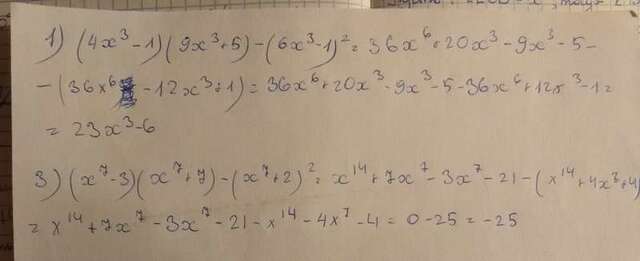 1) (4x³-1)(9x³+5)-(6x³-1)²=36x⁶+20x³-9x³-5-
-(36x⁶ -12x³+1)=36x⁶+20x³-9x³-5-36x⁶+12x³-1=
= 23x³-6
3) (x⁷-3)(x⁷+7)-(x⁷+2)²=x¹⁴+7x⁷-3x⁷-21-(x¹⁴+4x³+4)
= x¹⁴+7x⁷-3x⁷-21-x¹⁴-4x⁷-4=0-25=-25